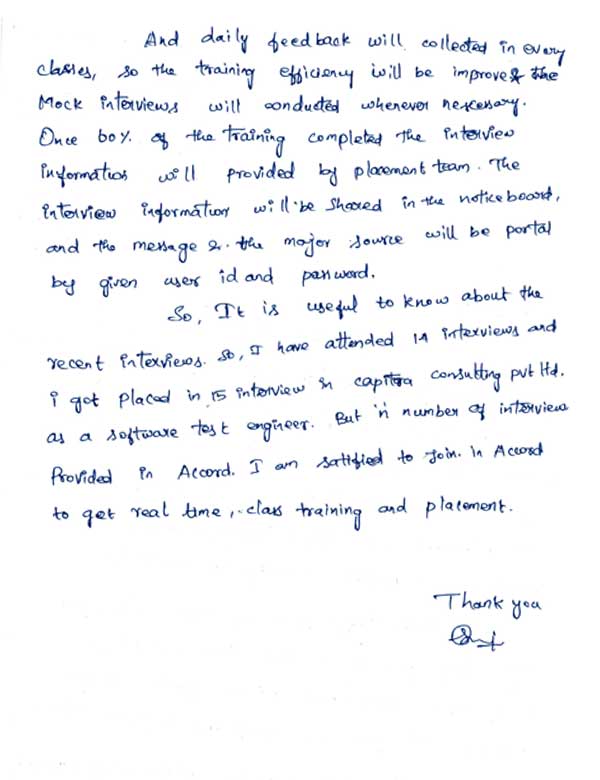 And daily feedback will collected in every
classes, so the training efficiency will be improve & the
Mock interviews will conducted whenever necessary.
Once 60% of the training completed the interview
information will provided by placement team. The
interview information will be shared in the notice board,
and the message & the major source will be portal
by given user id and password.
So, It is useful to know about the
recent interviews. So, I have attended 14 interviews and
i got placed in 15 interview in capitra consulting pvt ltd.
as a software test engineer. But 'n' number of interview
Provided in Accord. I am satified to join in Accord
to get real time, class training and placement.
Thank you